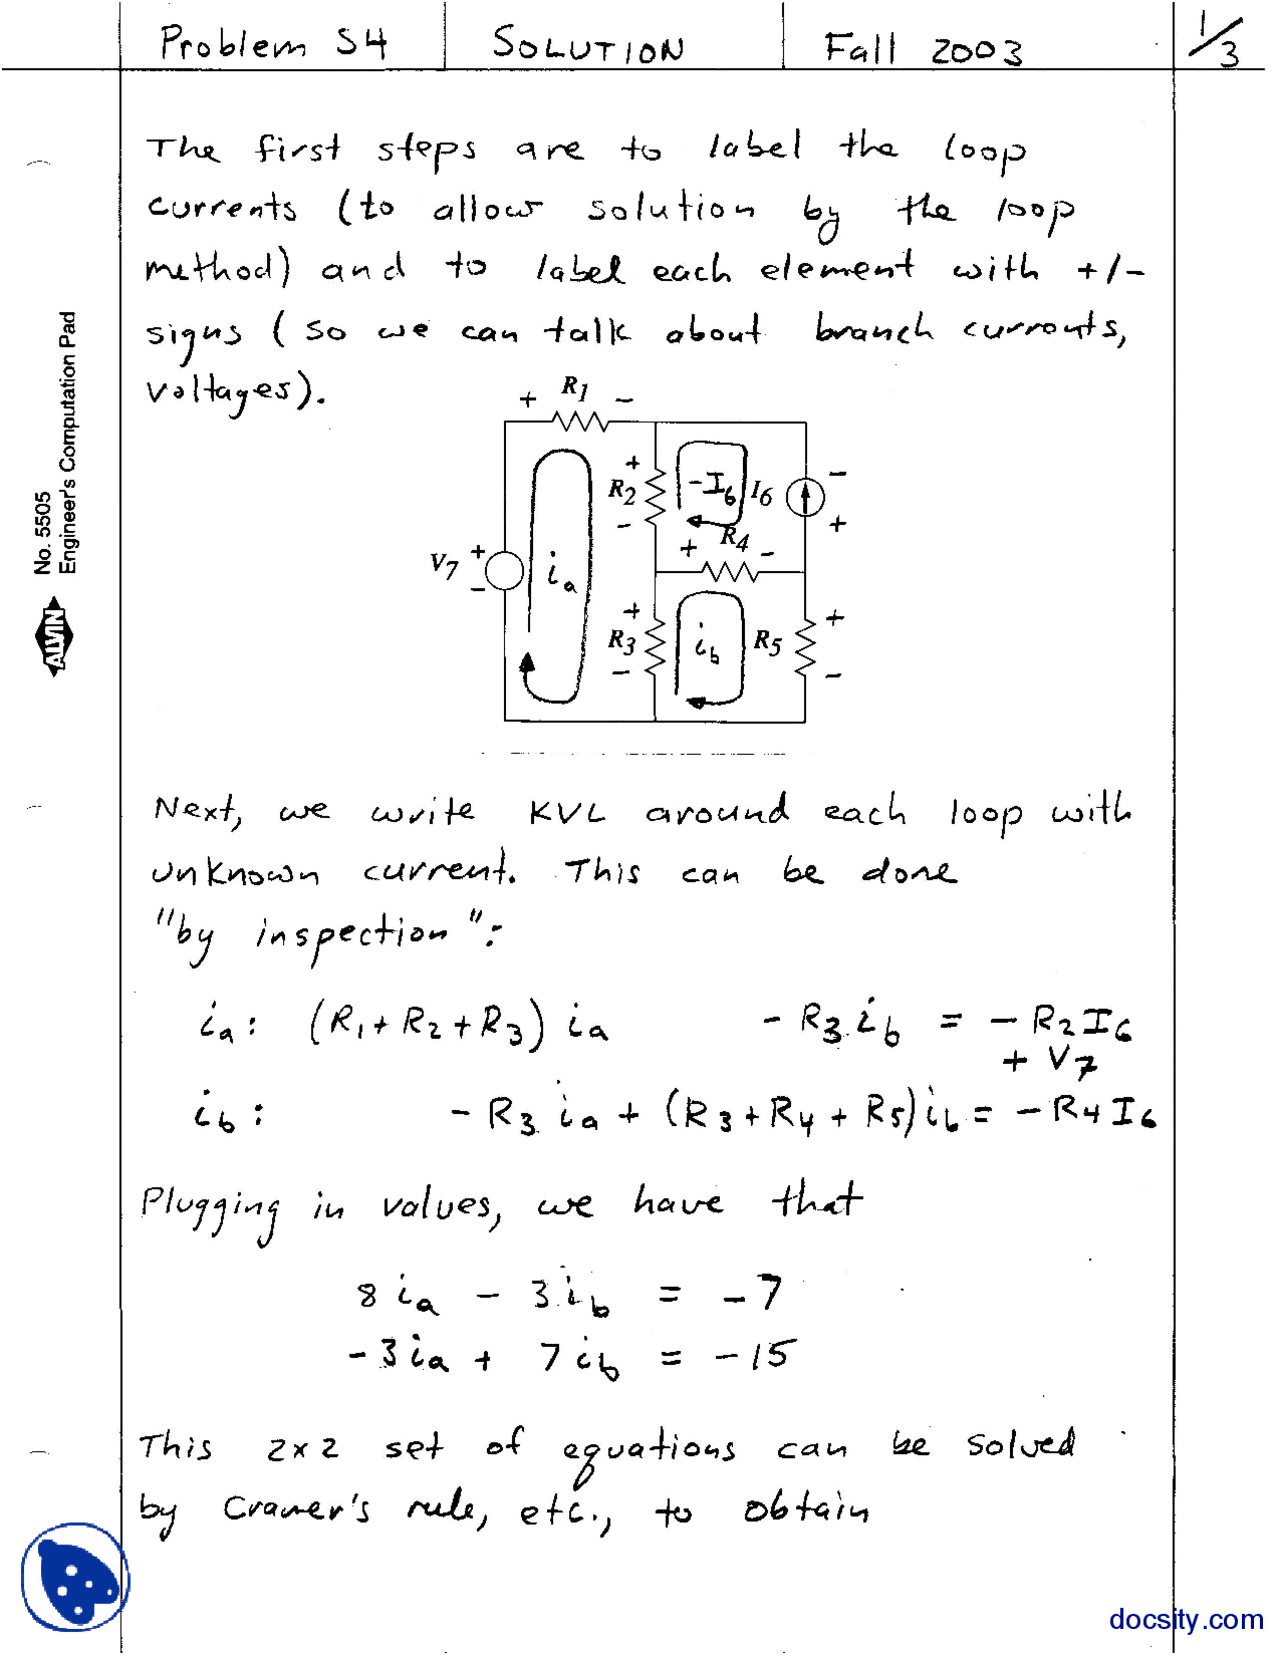 Problem S4 SOLUTION Fall 2003 1/3
The first steps are to label the loop
currents (to allow solution by the loop
method) and to label each element with +/-
signs (so we can talk about branch currents,
voltages).
+ R1 -
+ R2 -
-I6
I6 - +
+ R4 -
V7 + -
ia
+ R3 -
ib
R5 + -
No. 5505
Engineer's Computation Pad
ALVIN
Next, we write KVL around each loop with
unknown current. This can be done
"by inspection":
ia: (R1 + R2 + R3) ia - R3 ib = - R2 I6
+ V7
ib: - R3 ia + (R3 + R4 + R5) ib = - R4 I6
Plugging in values, we have that
8 ia - 3 ib = -7
-3 ia + 7 ib = -15
This 2x2 set of equations can be solved
by Cramer's rule, etc., to obtain
docsity.com